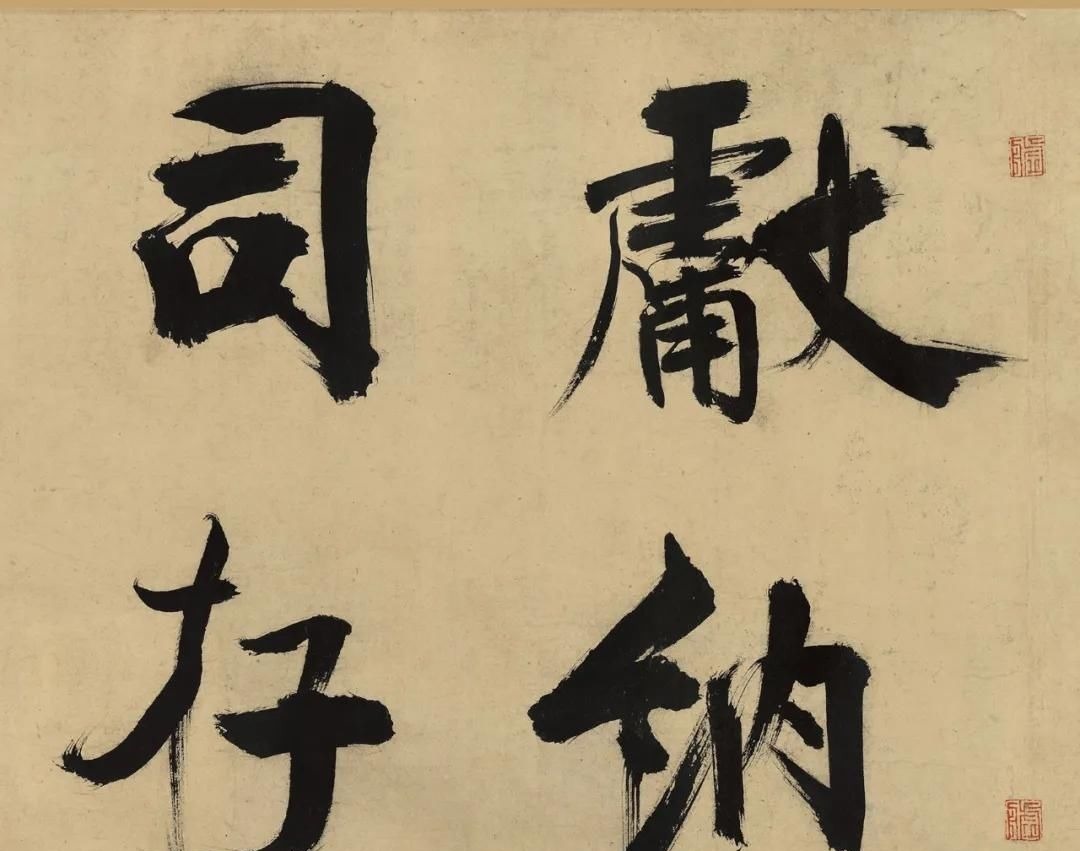 獻納
司存